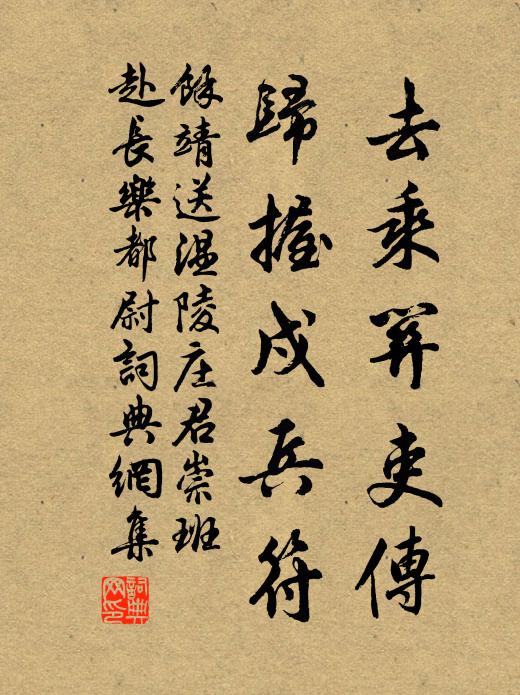 去乘筭吏傳
歸握戍兵符
餘靖送温陵庄君崇班
赴長樂都尉詞典網集
詞典网印